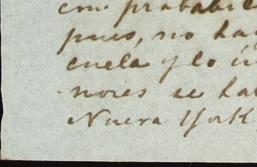 con probabil
pues, no ha
cuela y lo ú
nores se ha
Nueva York